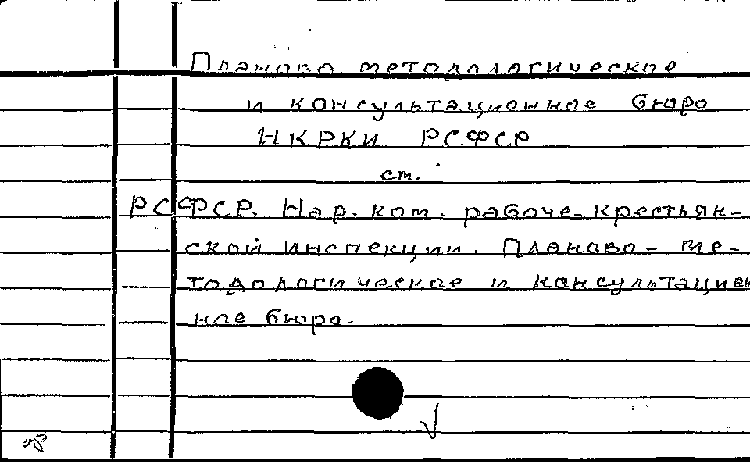 Планово методологическое
и консультационное бюро
НКРКИ РСФСР
ст.
РСФСР. Нар. ком. рабоче-крестьян-
ской инспекции. Планово-ме-
тодологическое и консультацион
ное бюро.